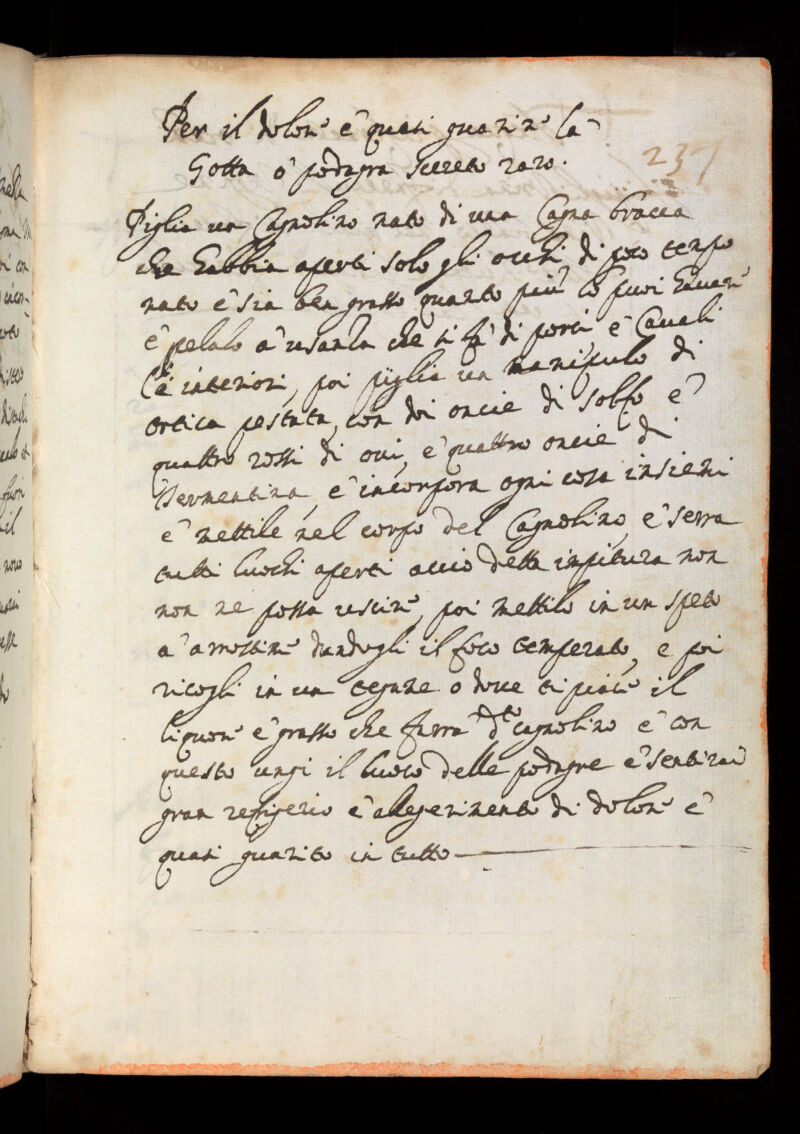 Per il dolore è quasi guarire la
Gotta ò podagra secreto raro.
237
Piglia un Cagnolino nato di una Cagna bracca
che habbia aperti solo gli occhi di poco tempo
nato è sia ben grasso quanto più lo puoi havere
è pelalo a usanza che si fà di porci è Cavali
l'interiori, poi piglia un manipulo di
ortica pestata, con doi oncie di solfo è
quattro rossi di ovi, è quattro oncie di
Termentina, è incorpora ogni cosa insiemi
è mettile nel corpo del Cagnolino, è serra
tutti luochi aperti accio detta impitura non
non ne possa uscire, poi mettilo in un speto
a arrostire dandogli il foco temperato, e poi
ricogli in un tegane o dove ti piace il
liquore è grasso che farra d.to cagnolino è con
questo ungi il luoco delle podagre è sentirai
gran refigerio è allegerimento di dolore è
quasi guarito in tutto